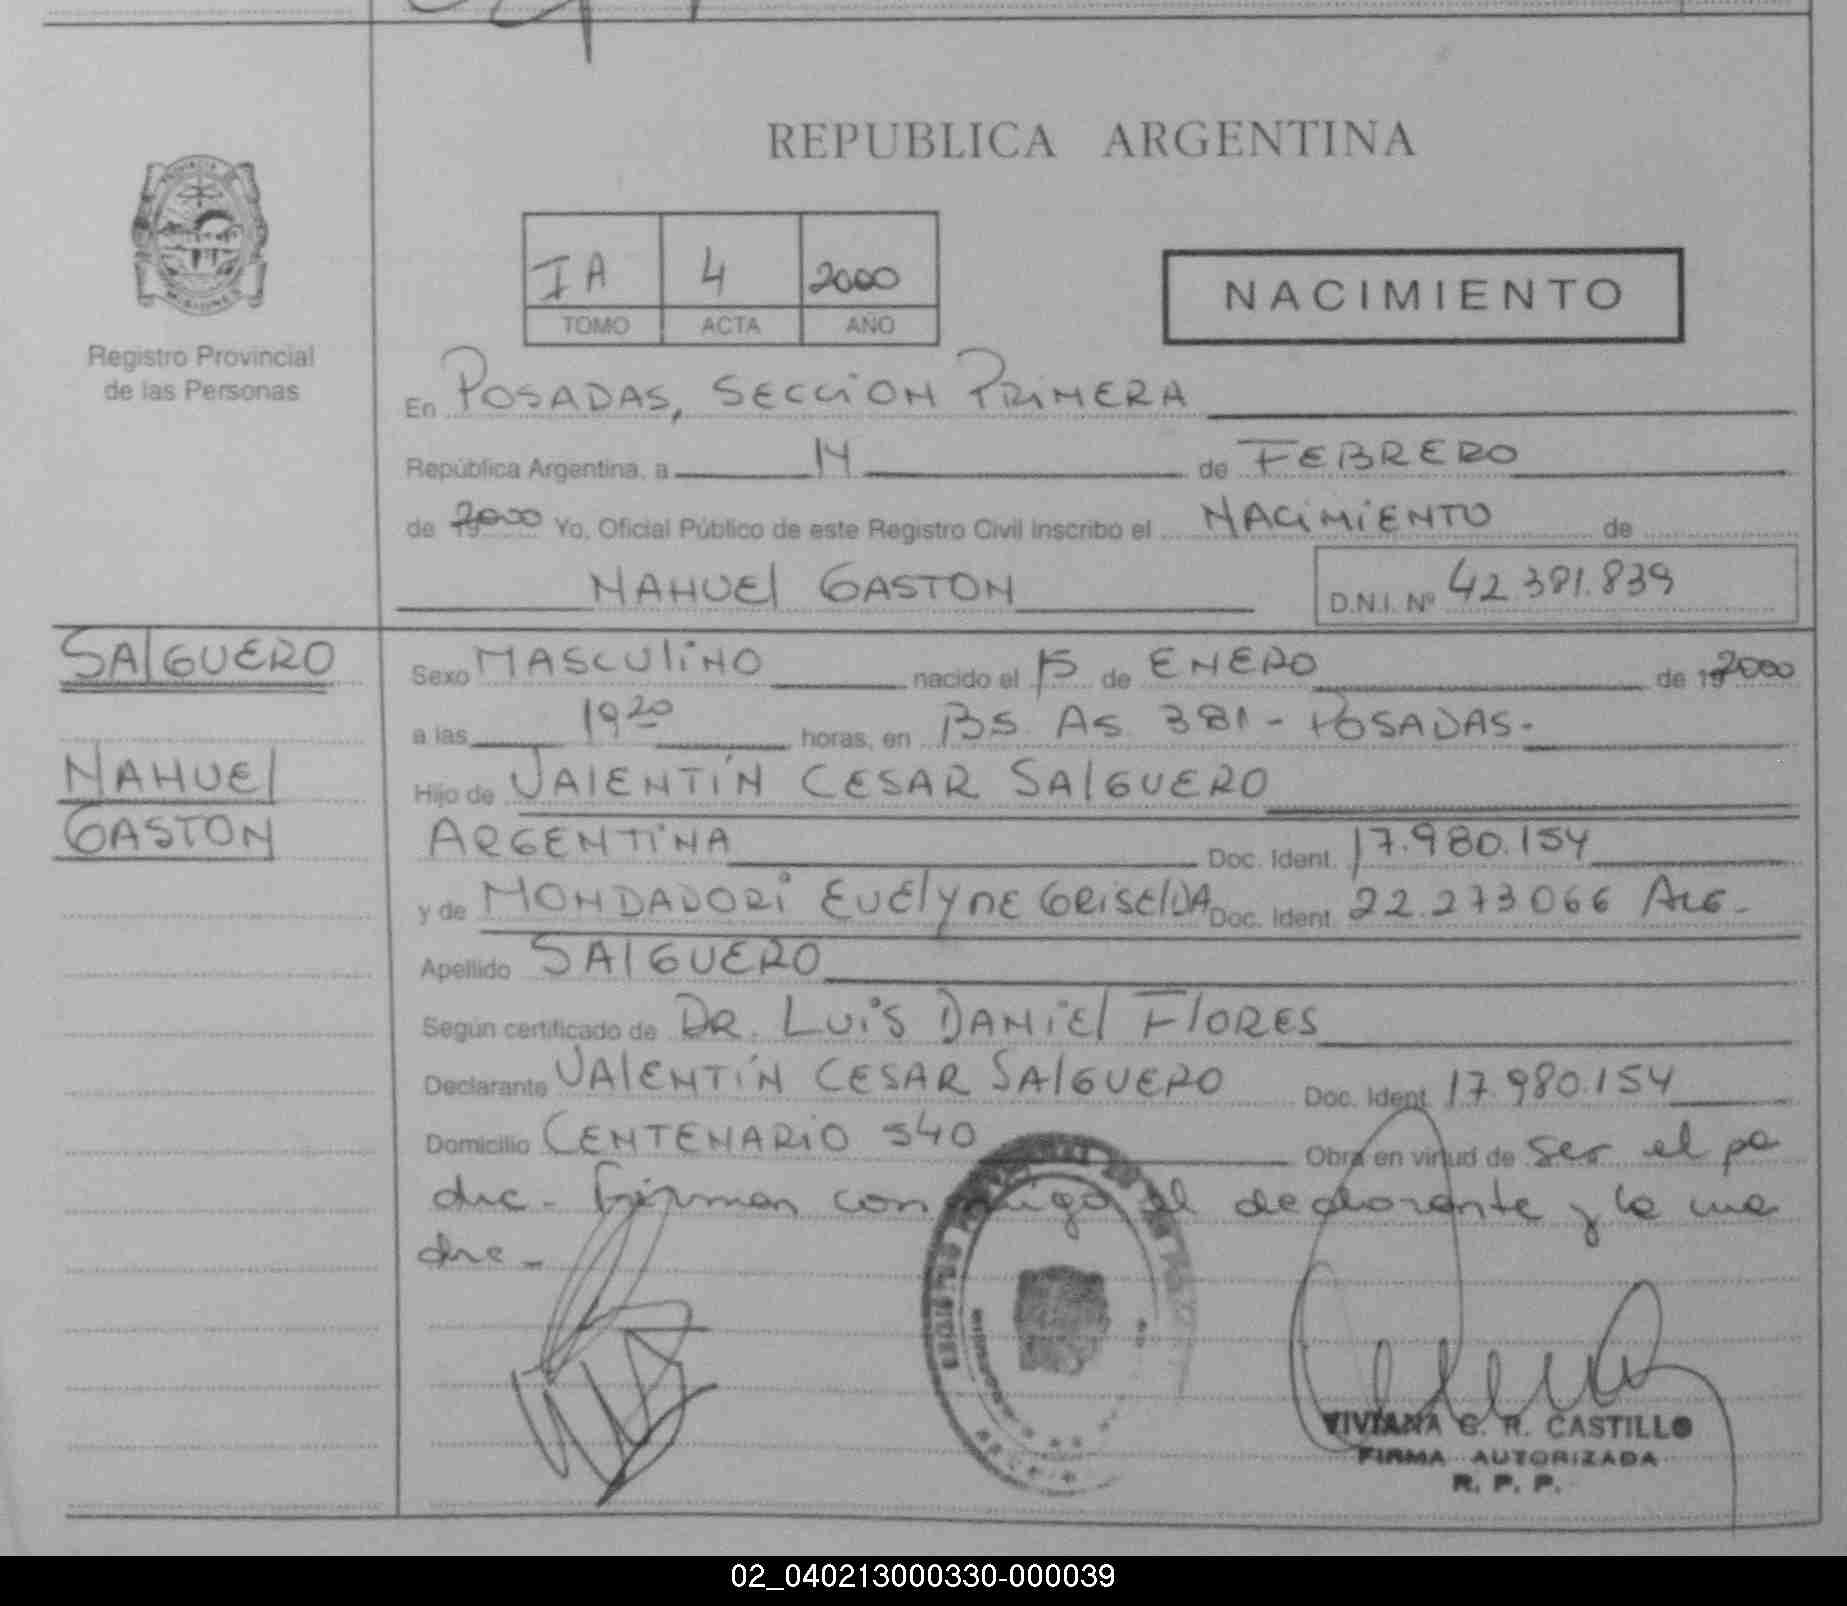 REPUBLICA ARGENTINA
IA 4 2000
TOMO ACTA AÑO
NACIMIENTO
Registro Provincial
de las Personas
En POSADAS, SECCION PRIMERA
República Argentina, a 14 de FEBRERO
de 2000 Yo, Oficial Público de este Registro Civil inscribo el NACIMIENTO de
NAHUEL GASTON D.N.I. Nº 42.381.839
SALGUERO
NAHUEL
GASTON
Sexo MASCULINO nacido el 15 de ENERO de 2000
a las 19 20 horas, en BS. AS. 381 - POSADAS.
Hijo de VALENTÍN CESAR SALGUERO
ARGENTINA Doc. Ident. 17.980.154
y de MONDADORI EVELYNE GRISELDA Doc. Ident. 22.273.066 ARG.
Apellido SALGUERO
Según certificado de DR. LUIS DANIEL FLORES
Declarante VALENTÍN CESAR SALGUERO Doc. Ident. 17.980.154
Domicilio CENTENARIO 540 Obra en virtud de ser el pa
dre - Firman conmigo el declarante y la ma
dre -
VIVIANA G. R. CASTILLO
FIRMA AUTORIZADA
R. P. P.
02_040213000330-000039